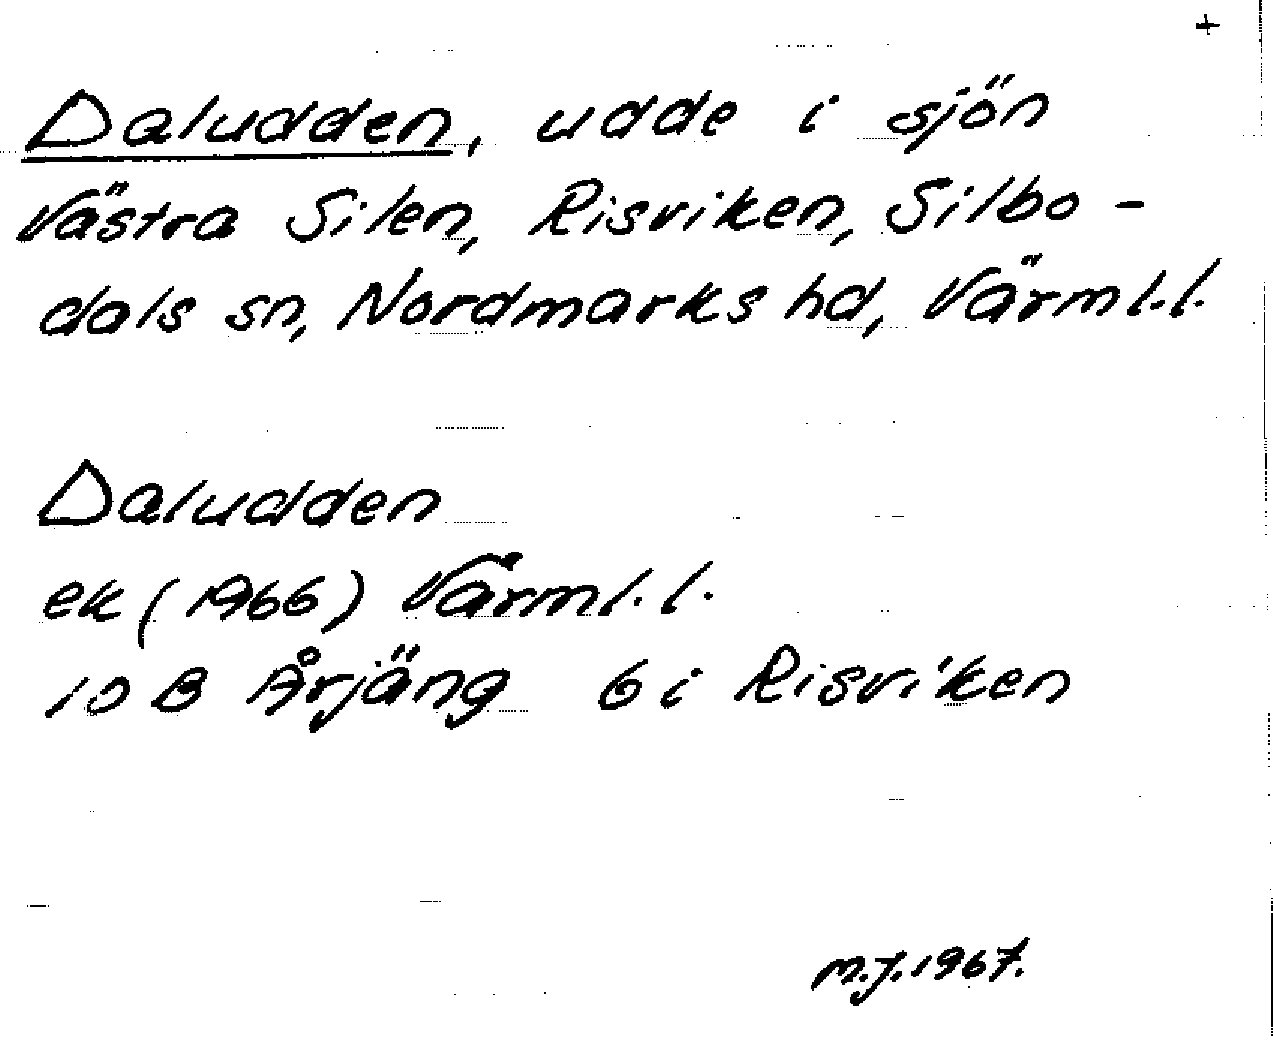 +
Daludden, udde i sjön
Västra Silen, Risviken, Silbo-
dals sn, Nordmarks hd, Värml.l.
Daludden
ek (1966) Värml.l.
10 B Årjäng 6 i Risviken
M.J. 1967.